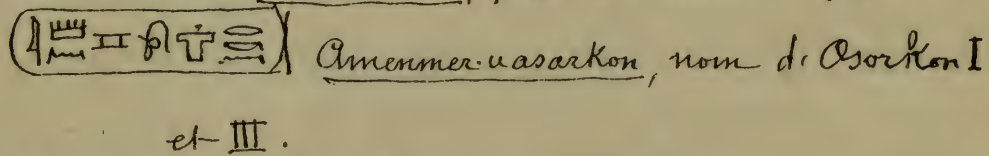 Amenmer-uasarkon, nom d. Osorkon I
et III.